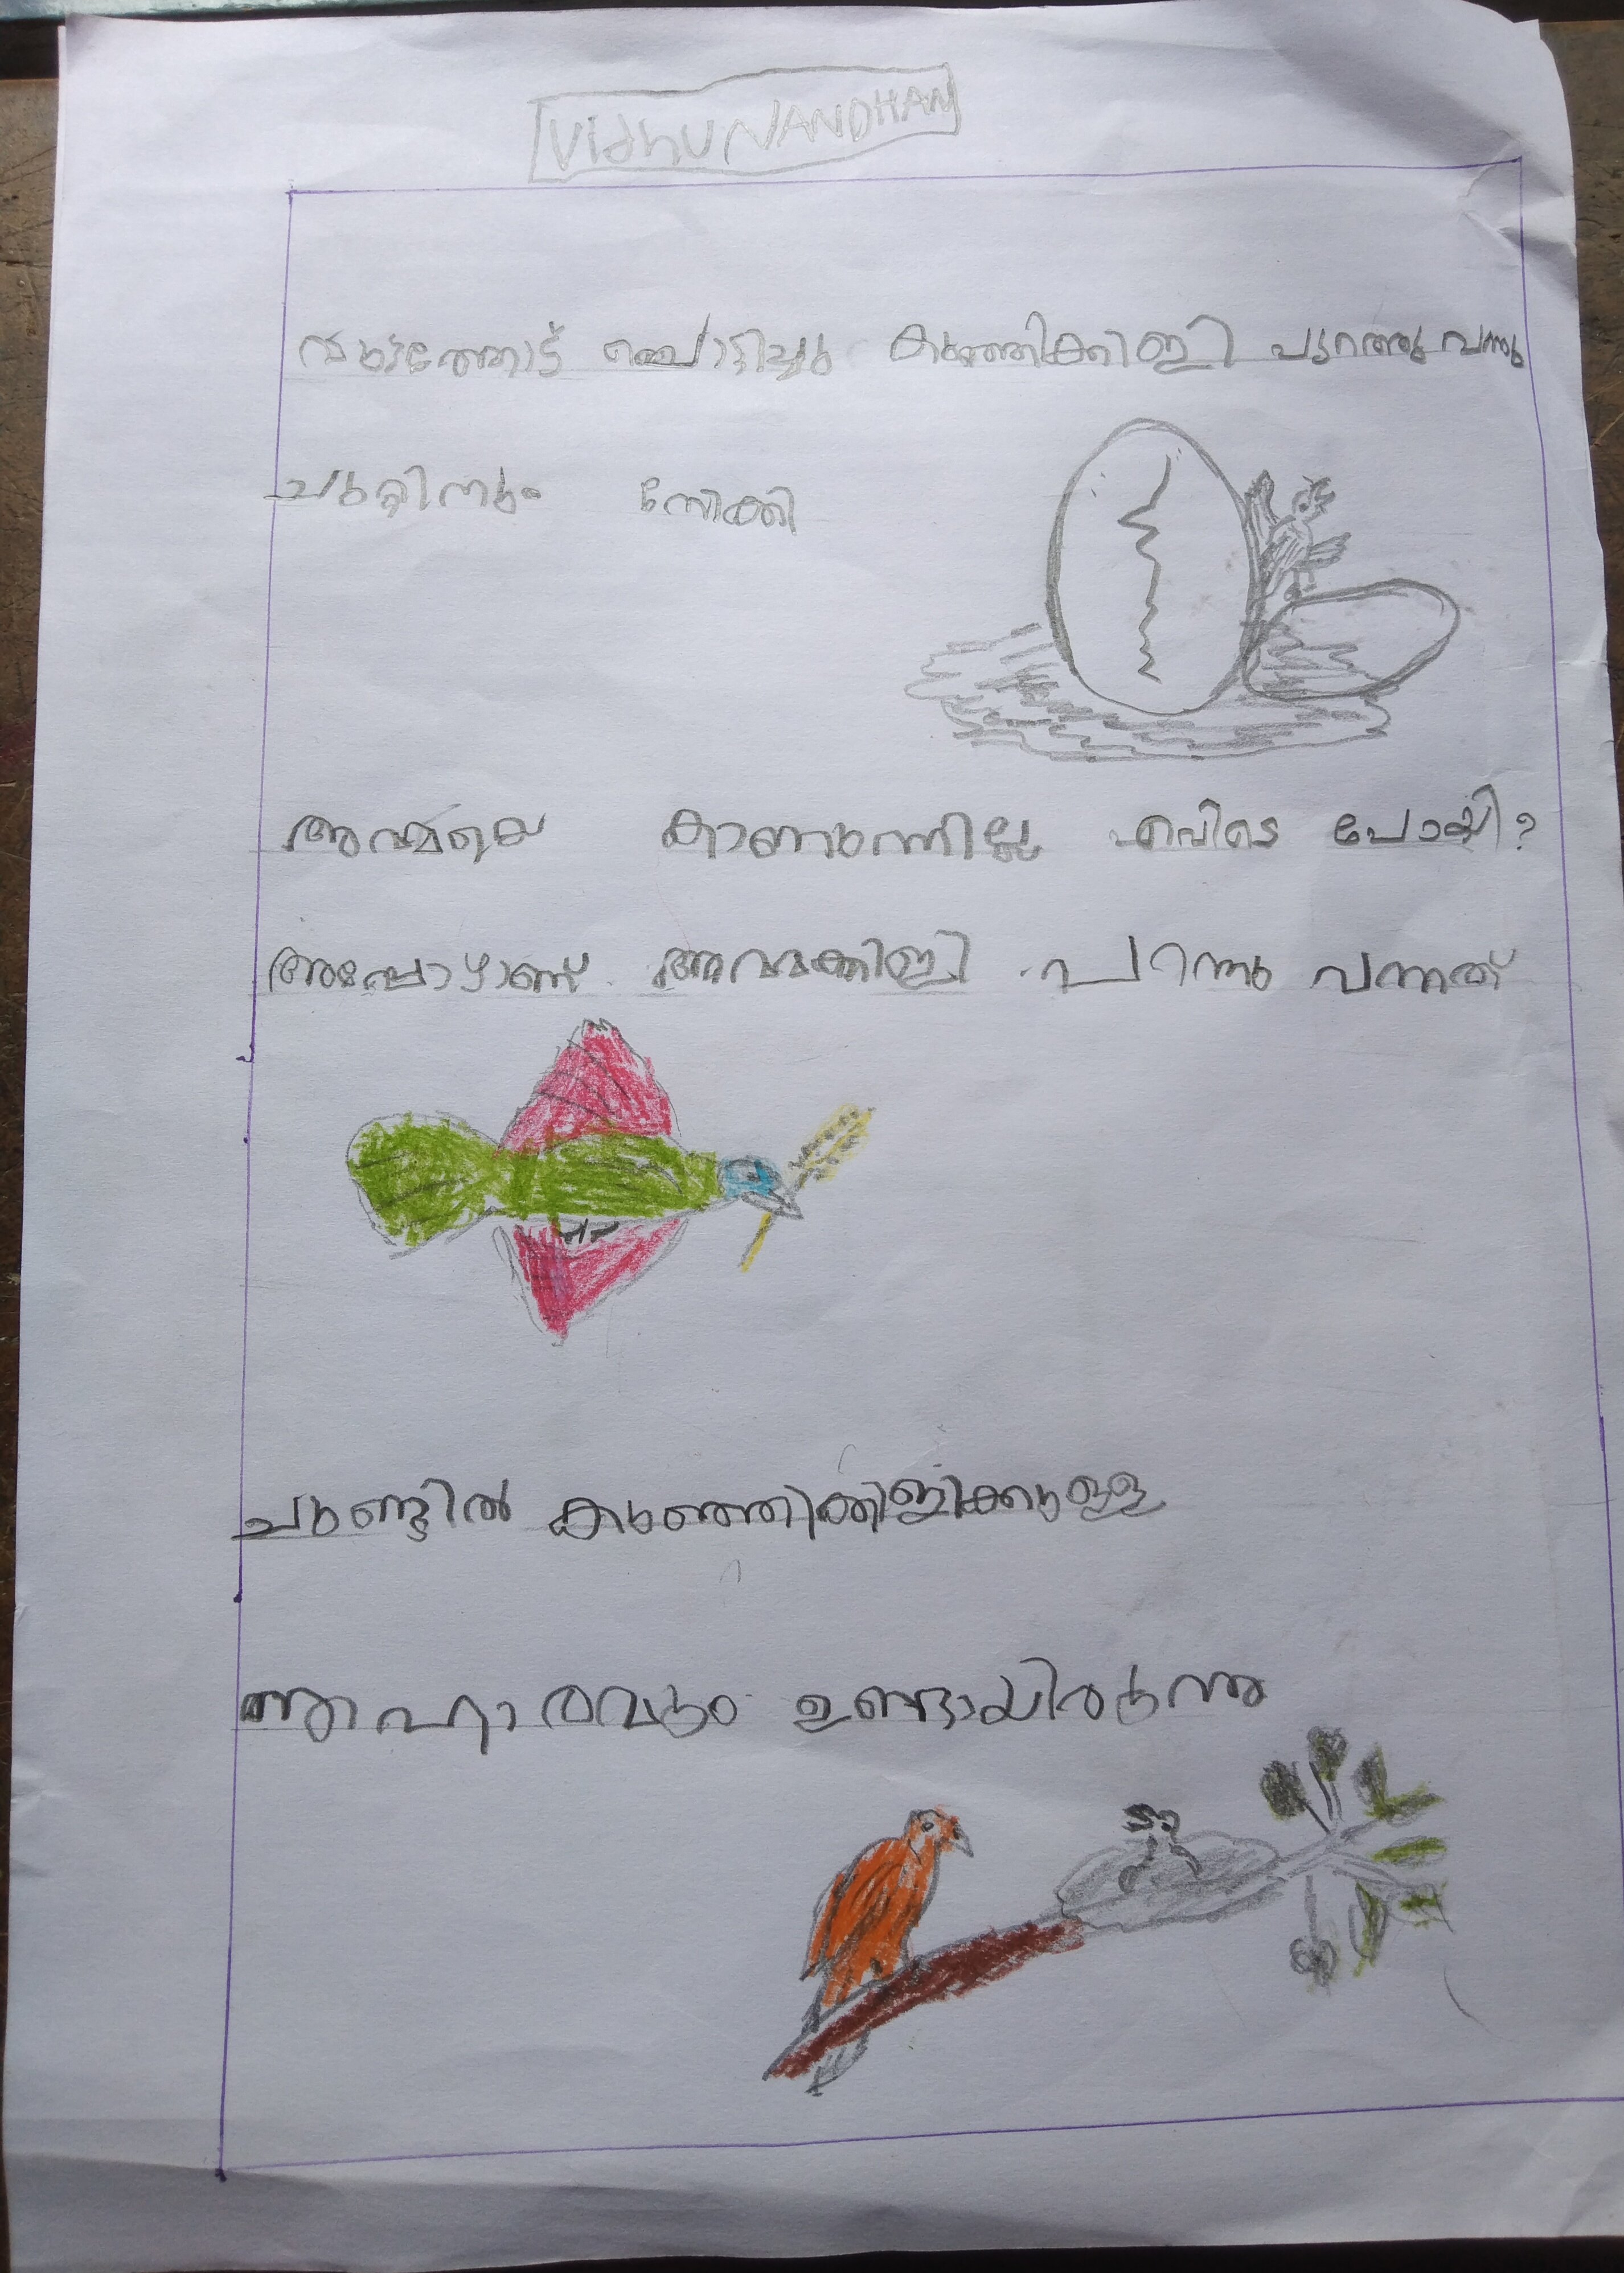 VidhuNANDHAN
മുട്ടത്തോട് പൊട്ടിച്ചു കുഞ്ഞിക്കിളി പുറത്തു വന്നു
ചുറ്റിനും നോക്കി
അമ്മയെ കാണുന്നില്ല എവിടെ പോയി?
അപ്പോഴാണ് അമ്മക്കിളി പറന്നു വന്നത്
ചുണ്ടിൽ കുഞ്ഞിക്കിളിക്കുള്ള
ആഹാരവും ഉണ്ടായിരുന്നു